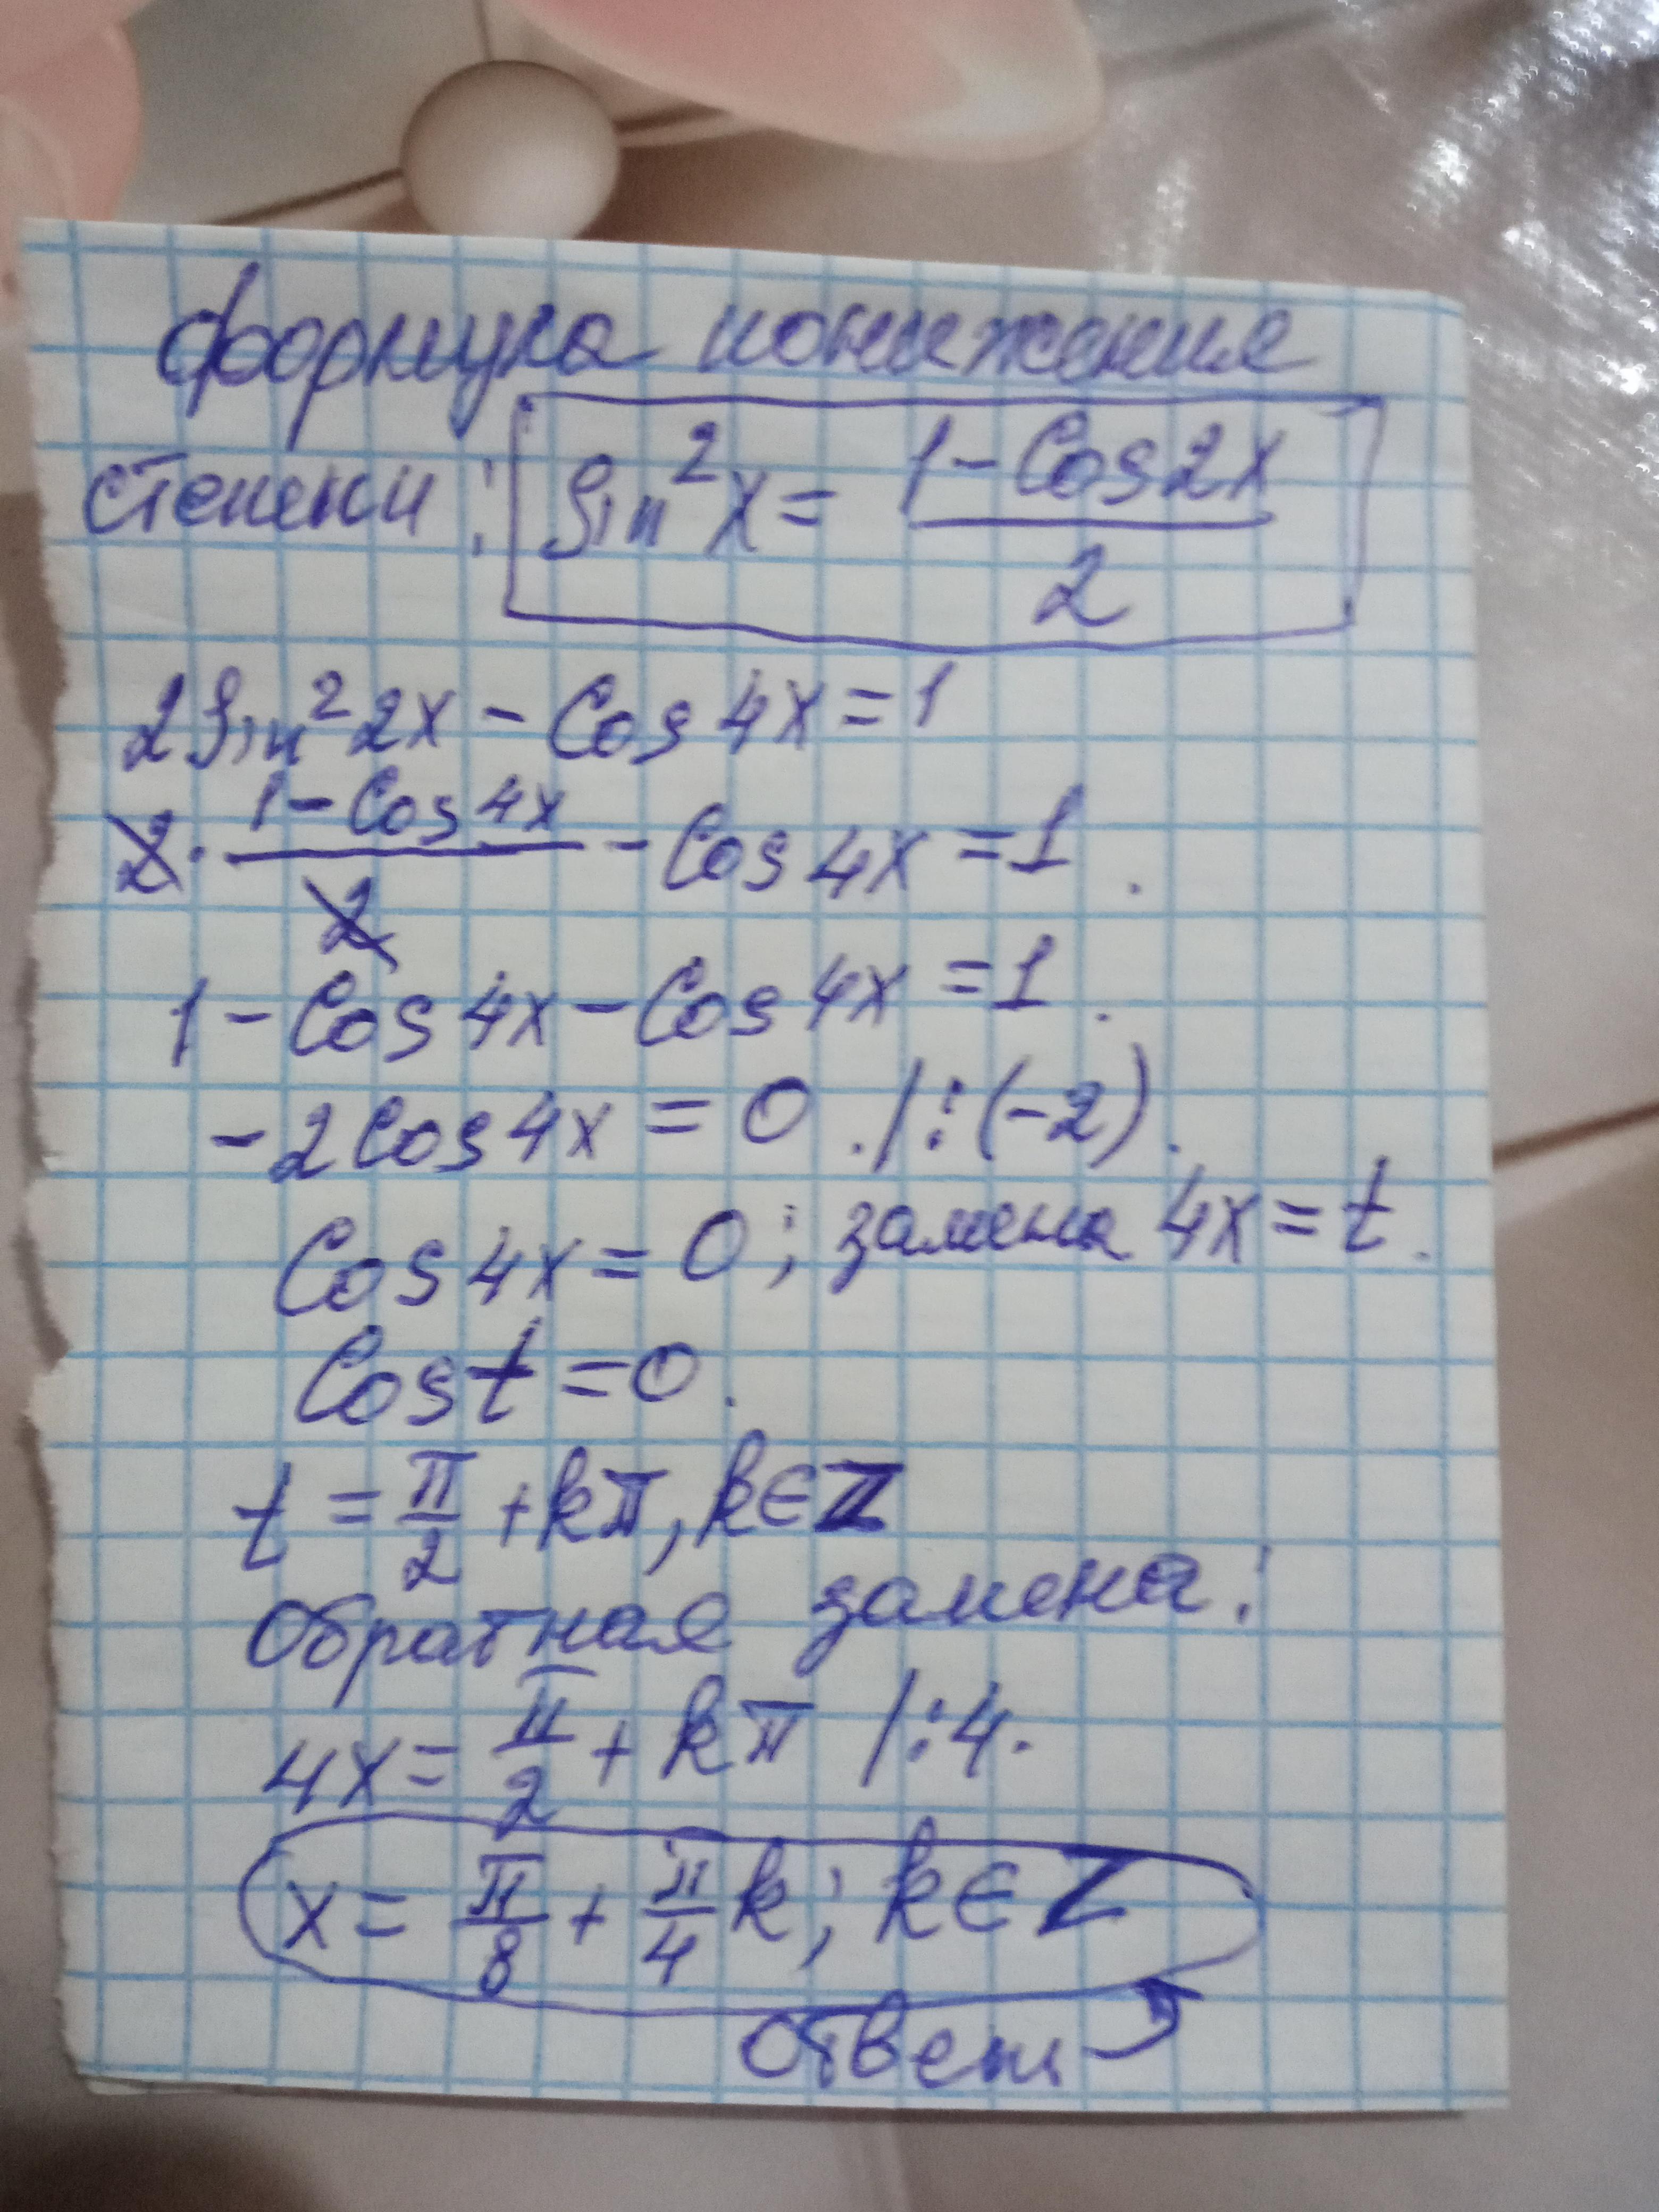 формула понижения
степени: sin²x = (1 - Cos2x)/2
2sin²2x - Cos4x = 1
2 · (1 - Cos4x)/2 - Cos4x = 1.
1 - Cos4x - Cos4x = 1.
-2Cos4x = 0. /:(-2).
Cos4x = 0; замена 4x = t.
Cost = 0.
t = π/2 + kπ, k∈Z
Обратная замена:
4x = π/2 + kπ /:4.
x = π/8 + π/4 k; k∈Z
ответ